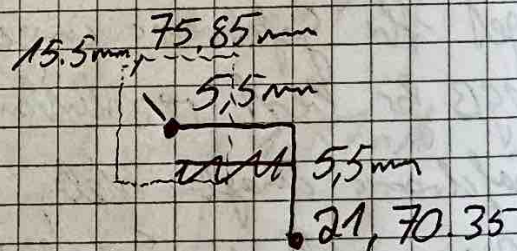 15.5mm, 75.85mm
5,5mm
5,5mm
21, 70.35